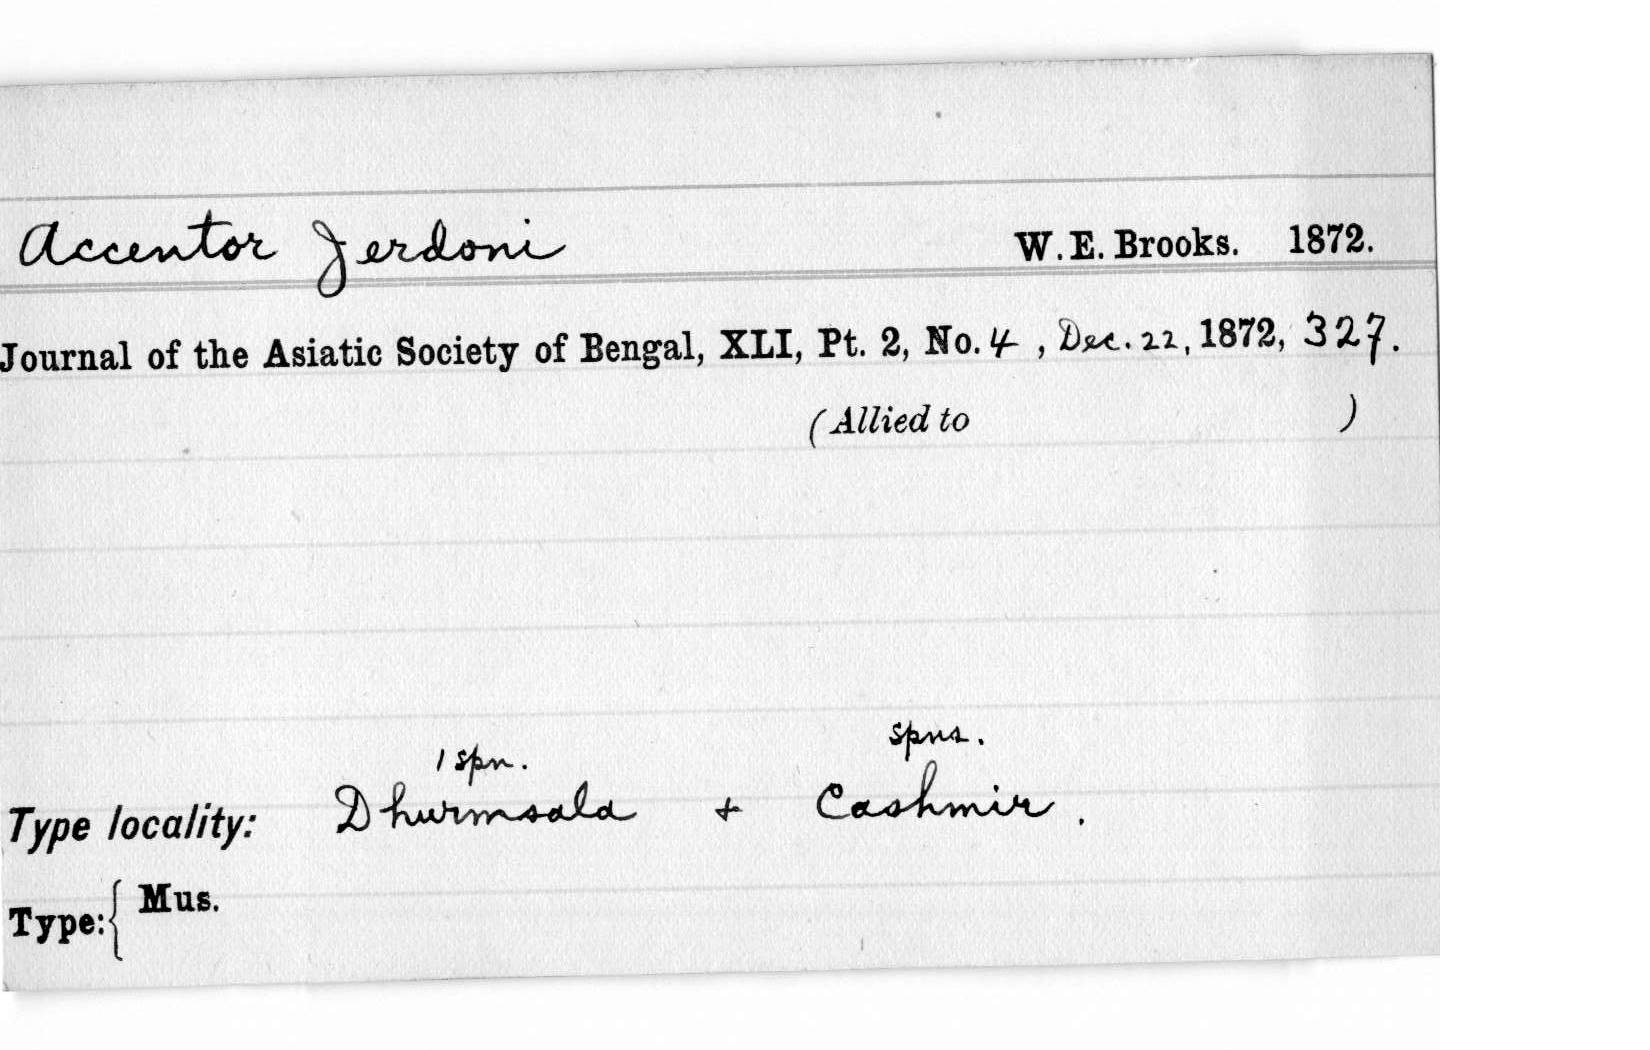 Accentor Jerdoni W. E. Brooks. 1872.
Journal of the Asiatic Society of Bengal, XLI, Pt. 2, No. 4, Dec. 22, 1872, 327.
(Allied to )
1 spn. spns.
Type locality: Dhurmsala + Cashmir.
Type: { Mus.